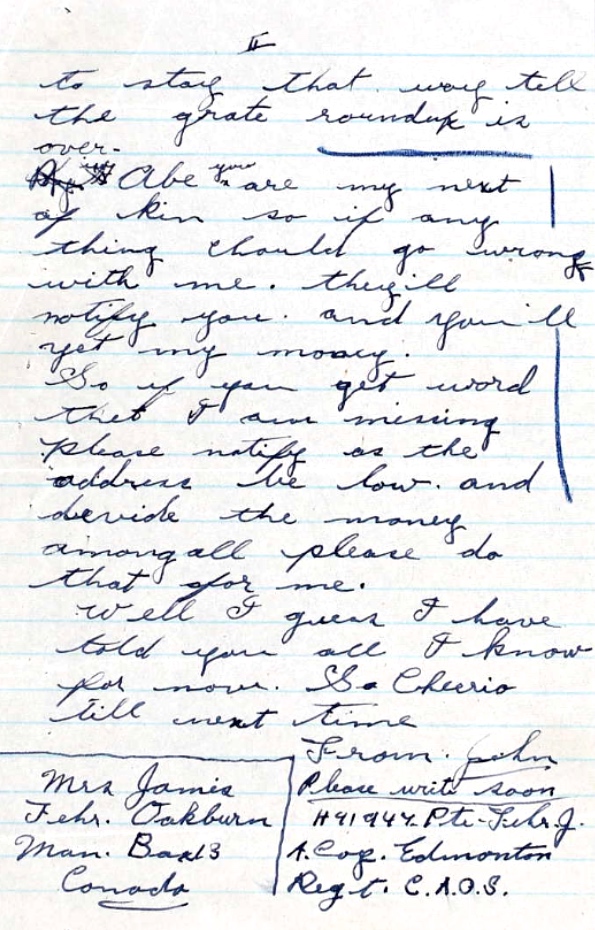 II
to stay that way tell
the grate roundup is
over.
Abe you are my next
of kin so if any
thing should go wrong
with me. they'll
notify you. and you'll
get my money.
So if you get word
thet I am missing
please notify as the
address be low. and
devide the money
among all please do
that for me.
Well I guess I have
told you all I know
for now. So Cheerio
till next time
From. John
Please write soon
Mrs James
Fehr. Oakburn
Man. Box 13
Canada
H41947. Pte. Fehr. J.
A. Coy. Edmonton
Regt. C.A.O.S.